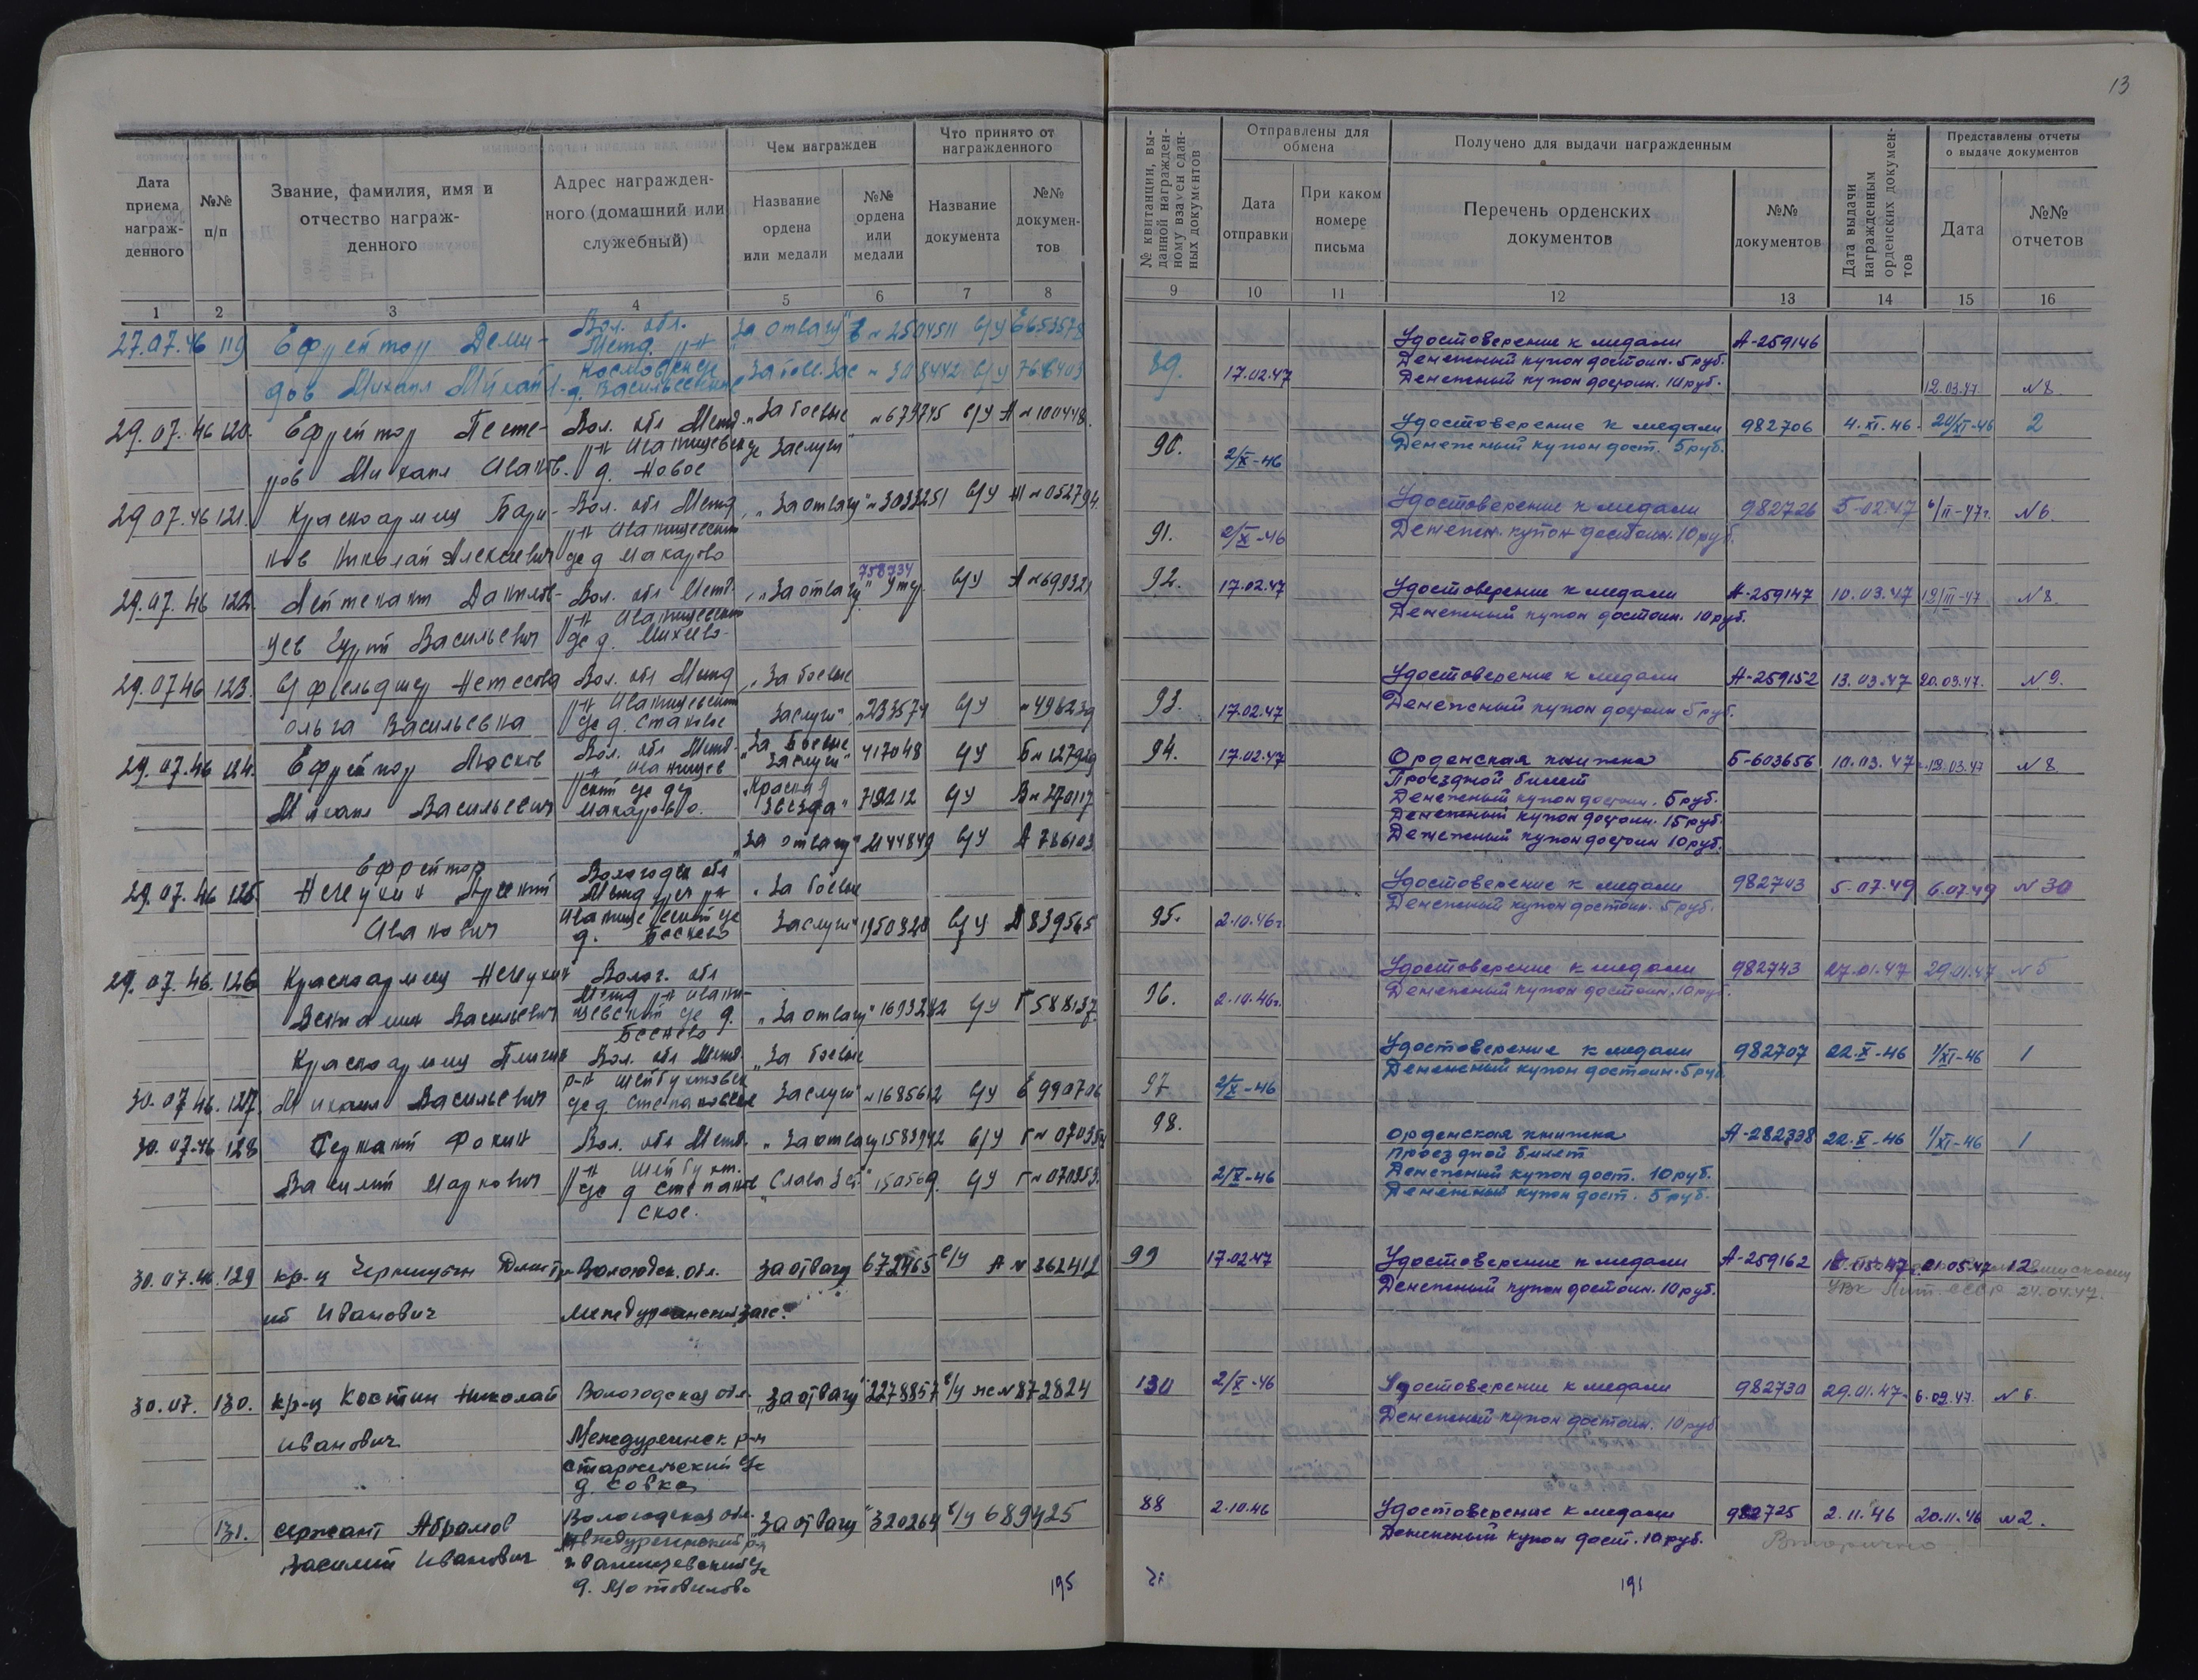 13
Дата приема награжденного
№№ п/п
Звание, фамилия, имя и отчество награжденного
Адрес награжденного (домашний или служебный)
Чем награжден
Название ордена или медали
№№ ордена или медали
Что принято от награжденного
Название документа
№№ документов
№ квитанции, выданной награжденному взамен сданных документов
Отправлены для обмена
Дата отправки
При каком номере письма
Получено для выдачи награжденным
Перечень орденских документов
№№ документов
Дата выдачи награжденным орденских документов
Представлены отчеты о выдаче документов
Дата
№№ отчетов
1 2 3 4 5 6 7 8 9 10 11 12 13 14 15 16
27.07.46 119 Ефрейтор Деми- Вол. обл. "За отвагу" № 2504511 в/у Е 653578
Удостоверение к медали А-259146
дов Михаил Михайл. д. Васильевское За боев. Зас № 308442 в/у 768403
89. 17.02.47 Денежный купон достоин. 5 руб.
Денежный купон достоин. 10 руб. 12.03.47. №8.
29.07.46 120. Ефрейтор Песте- Вол. обл Межд. "За боевые № 679745 в/у А № 100448.
ров Михаил Иванов. р-н Иванищевск с/с Заслуги"
д. Новое
90. 2/X-46 Удостоверение к медали 982706 4.XI.46. 20/XI-46 2
Денежный купон дост. 5 руб.
29.07.46 121. Красноармеец Бари- Вол. обл Межд "За отвагу" № 3033251 в/у Ж № 052794.
нов Николай Алексеевич р-н Иванищевский с/с д Макарово
91. 2/X-46 Удостоверение к медали 982726 5-02.47 6/II-47г. №6.
Денежн. купон достоин. 10 руб.
29.07.46 122. Лейтенант Данилов- Вол. обл Межд. "За отвагу" 758734 Утер. в/у А № 699321
цев Гурий Васильевич р-н Иванищевский с/с д. Михеево
92. 17.02.47 Удостоверение к медали А-259147 10.03.47 12/III-47. №8.
Денежный купон достоин. 10 руб.
29.07.46 123. Фельдшер Нетесова Вол. обл Межд "За боевые
Ольга Васильевна р-н Иванищевский с/с д. Становые Заслуги" № 233574 в/у № 496239
93. 17.02.47 Удостоверение к медали А-259152 13.03.47 20.03.47. №9.
Денежный купон достоин 5 руб.
29.07.46 124. Ефрейтор Лосков Вол. обл Межд. "За Боевые Заслуги" 417048 в/у Б № 127929
Михаил Васильевич р-н Иванищевский с/с д. Макарово. "Красная Звезда" 719212 в/у В № 270117
"За отвагу" 2144849 в/у А 786103
94. 17.02.47 Орденская книжка Б-603656 10.03.47 12.03.47 №8
Проездной билет
Денежный купон достоин. 5 руб.
Денежный купон достоин. 15 руб.
Денежный купон достоин 10 руб.
29.07.46 125. Ефрейтор Вологодск обл "За боевые
Иванович д. Беснево Заслуги" 1950920 в/у Д 839565
95. 2.10.46г. Удостоверение к медали 982743 5.07.49 6.07.49 №30
Денежный купон достоин. 5 руб.
29.07.46 126 Красноармеец Нечухин Волог. обл
Вениамин Васильевич Межд р-н Иванищевский с/с д. Беснево "За отвагу" 1693242 в/у Г 588137.
96. 2.10.46г. Удостоверение к медали 982743 27.01.47 29.01.47 №5
Денежный купон достоин. 10 руб.
Красноармеец Пличин Вол. обл Межд. "За боевые
30.07.46. 127. Михаил Васильевич р-н Шейбухтовск с/с д Степановское Заслуги" № 1685612 в/у Е 990706
97. 2/X-46 Удостоверение к медали 982707 22.X-46 1/XI-46 1
Денежный купон достоин. 5 руб
30.07.46 128 Сержант Фокин Вол. обл Межд. "За отвагу 1583942 в/у Г № 070354
Василий Маркович р-н Шейбухт. с/с д Степановское. "Слава 3 ст." 150569. в/у Г № 070353.
98. 2/X-46 Орденская книжка А-282338 22.X-46 1/XI-46 1
Проездной билет
Денежный купон дост. 10 руб.
Денежный купон дост. 5 руб.
30.07.46. 129 кр-ц Черницын Дмитри- Вологодск. обл. За отвагу 672465 в/у А № 362412
ий Иванович Междуреченский загс.
99 17.02.47 Удостоверение к медали А-259162 21.05.47 12
Денежный купон достоин. 10 руб. Лит. ССР 24.04.47.
30.07. 130. кр-ц Костин Николай Вологодская обл. "За отвагу" 2278857 в/у ж № 872824
Иванович Междуреченск р-н
Старосельский с/с
д. Совка
130 2/X-46 Удостоверение к медали 982730 29.01.47. 6.02.47. №6
Денежный купон достоин. 10 руб
131. сержант Абрамов Вологодская обл. "За отвагу" 320264 в/у 689425
Василий Иванович Междуреченский р-н
Иванищевский с/с
д. Мотовилово
88 2.10.46 Удостоверение к медали 982725 2.11.46 20.11.46 №2.
Денежный купон дост. 10 руб. Вторично
195
191